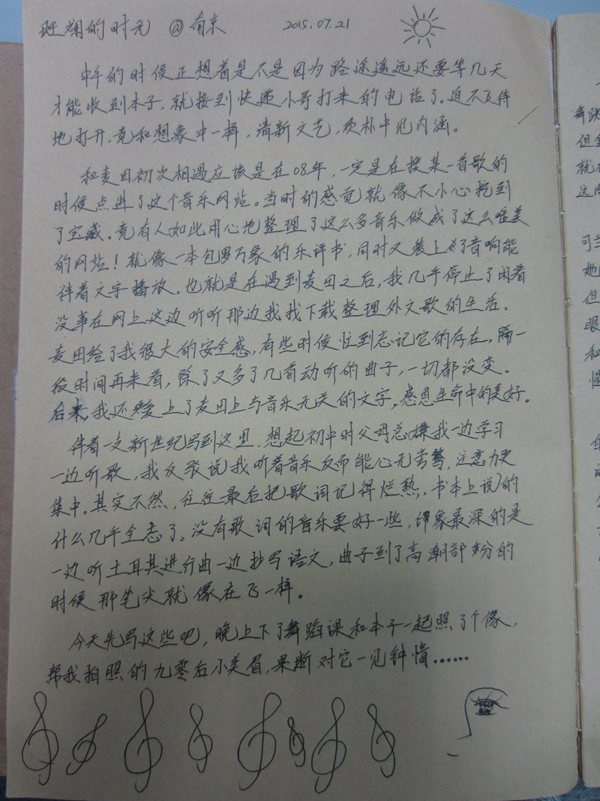 斑斓的时光 @南京 2015.07.21
中午的时候正想着是不是因为路途遥远还要等几天
才能收到本子,就接到快递小哥打来的电话了。迫不及待
地打开,竟和想象中一样,清新文艺,质朴中见内涵。
和麦田初次相遇应该是在08年,一定是在搜某一首歌的
时候点进了这个音乐网站。当时的感觉就像不小心挖到
了宝藏。竟有人如此用心地整理了这么多音乐做成了这么唯美
的网站!就像一本包罗万象的乐评书,同时又装上了音响能
伴着文字播放。也就是在遇到麦田之后,我几乎停止了闲着
没事在网上这边听听那边找找下载整理外文歌的生活。
麦田给了我很大的安全感,有些时候忙到忘记它的存在,隔一
段时间再来看,除了又多了几首动听的曲子,一切都没变。
后来,我还爱上了麦田上与音乐无关的文字。感恩生命中的美好。
伴着一支新世纪写到这里,想起初中时父母总嫌我一边学习
一边听歌,我反驳说我听着音乐反而能心无旁骛,注意力更
集中。其实不然,往往最后把歌词记得烂熟,书本上说的
什么几乎全忘了。没有歌词的音乐要好一些,印象最深的是
一边听土耳其进行曲一边抄写语文,曲子到了高潮部分的
时候那笔尖就像在飞一样。
今天先写这些吧,晚上下了舞蹈课和本子一起照了个像,
帮我拍照的九零后小美眉,果断对它一见钟情……